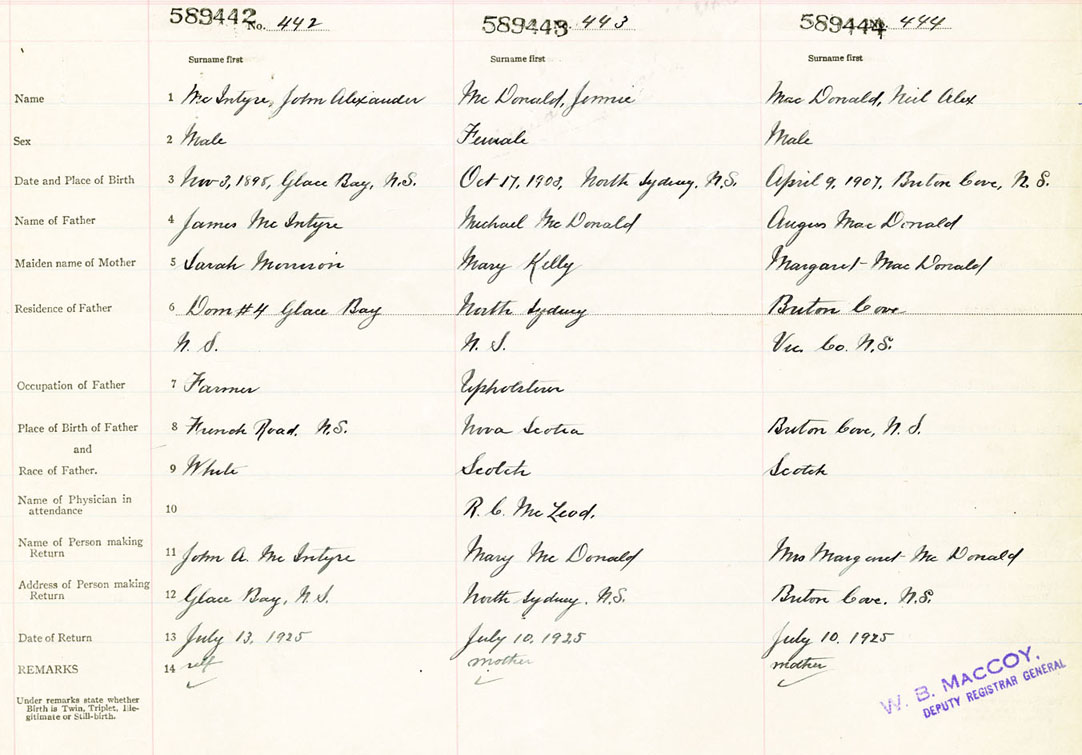 589442 No. 442 589443 No. 443 589444 No. 444
Surname first Surname first Surname first
Name 1 Mc Intyre, John Alexander Mc Donald, Jennie Mac Donald, Neil Alex
Sex 2 Male Female Male
Date and Place of Birth 3 Nov 3, 1898, Glace Bay, N.S. Oct 17, 1903, North Sydney, N.S. April 9, 1907, Briton Cove, N.S.
Name of Father 4 James Mc Intyre Michael Mc Donald Angus Mac Donald
Maiden name of Mother 5 Sarah Morrison Mary Kelly Margaret Mac Donald
Residence of Father 6 Dom #4 Glace Bay North Sydney Briton Cove
N.S. N.S. Vic. Co. N.S.
Occupation of Father 7 Farmer Upholsterer
Place of Birth of Father 8 French Road, N.S. Nova Scotia Briton Cove, N.S.
and
Race of Father. 9 White Scotch Scotch
Name of Physician in
attendance 10 R. C. Mc Leod.
Name of Person making
Return 11 John A. Mc Intyre Mary Mc Donald Mrs Margaret Mc Donald
Address of Person making
Return 12 Glace Bay, N.S. North Sydney, N.S. Briton Cove, N.S.
Date of Return 13 July 13, 1925 July 10, 1925 July 10, 1925
REMARKS 14 self mother mother
Under remarks state whether
Birth is Twin, Triplet, Ille-
gitimate or Still-birth.
W. B. MACCOY,
DEPUTY REGISTRAR GENERAL